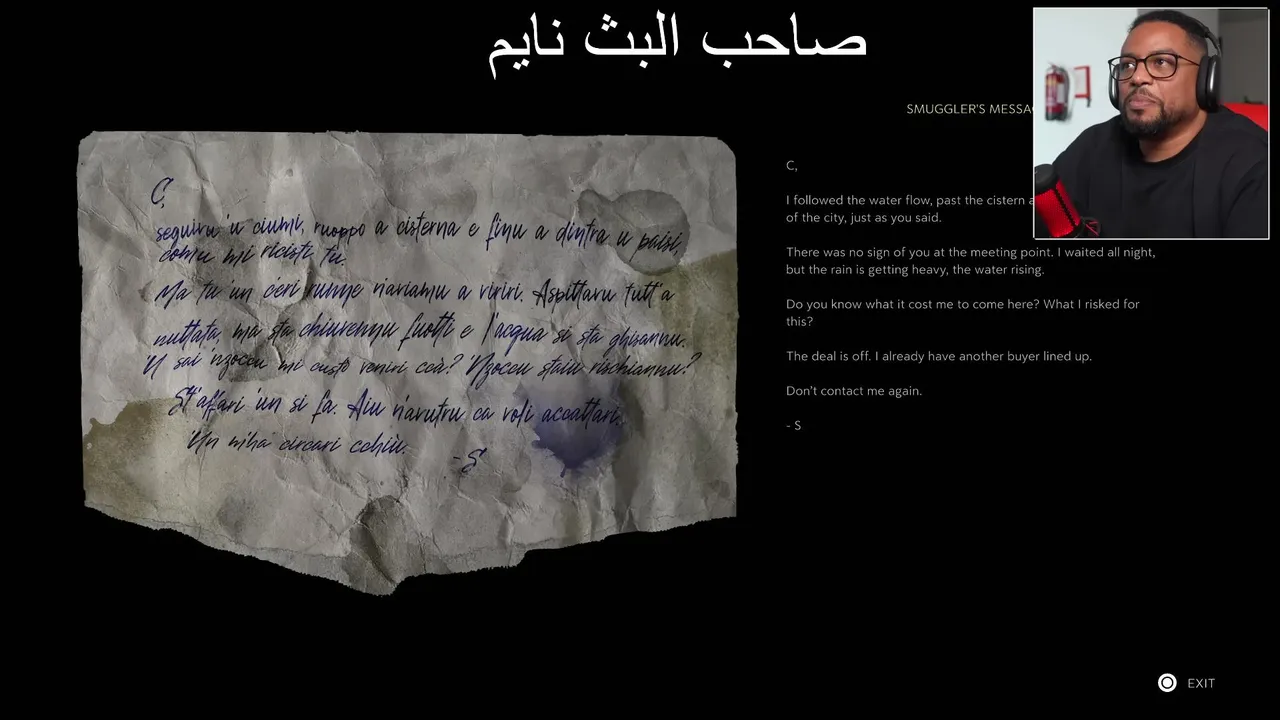 صاحب البث نايم
SMUGGLER'S MESSA
C,
seguivu 'u ciumi, ruoppo a cisterna e finu a dintra u paisi,
comu mi ricisti tu.
Ma tu 'un c'eri runne n'aviamu a viriri. Aspittavu tutt'a
nuttata, ma sta chiuvennu fuotti e l'acqua si sta ghisannu.
'U sai nzoccu mi custò veniri ccà? 'Nzoccu staiu rischiannu?
St'affari 'un si fa. Aiu n'avutru ca voli accattari.
'Un m'ha circari cchiù.
-S
C,
I followed the water flow, past the cistern a
of the city, just as you said.
There was no sign of you at the meeting point. I waited all night,
but the rain is getting heavy, the water rising.
Do you know what it cost me to come here? What I risked for
this?
The deal is off. I already have another buyer lined up.
Don't contact me again.
- S
EXIT